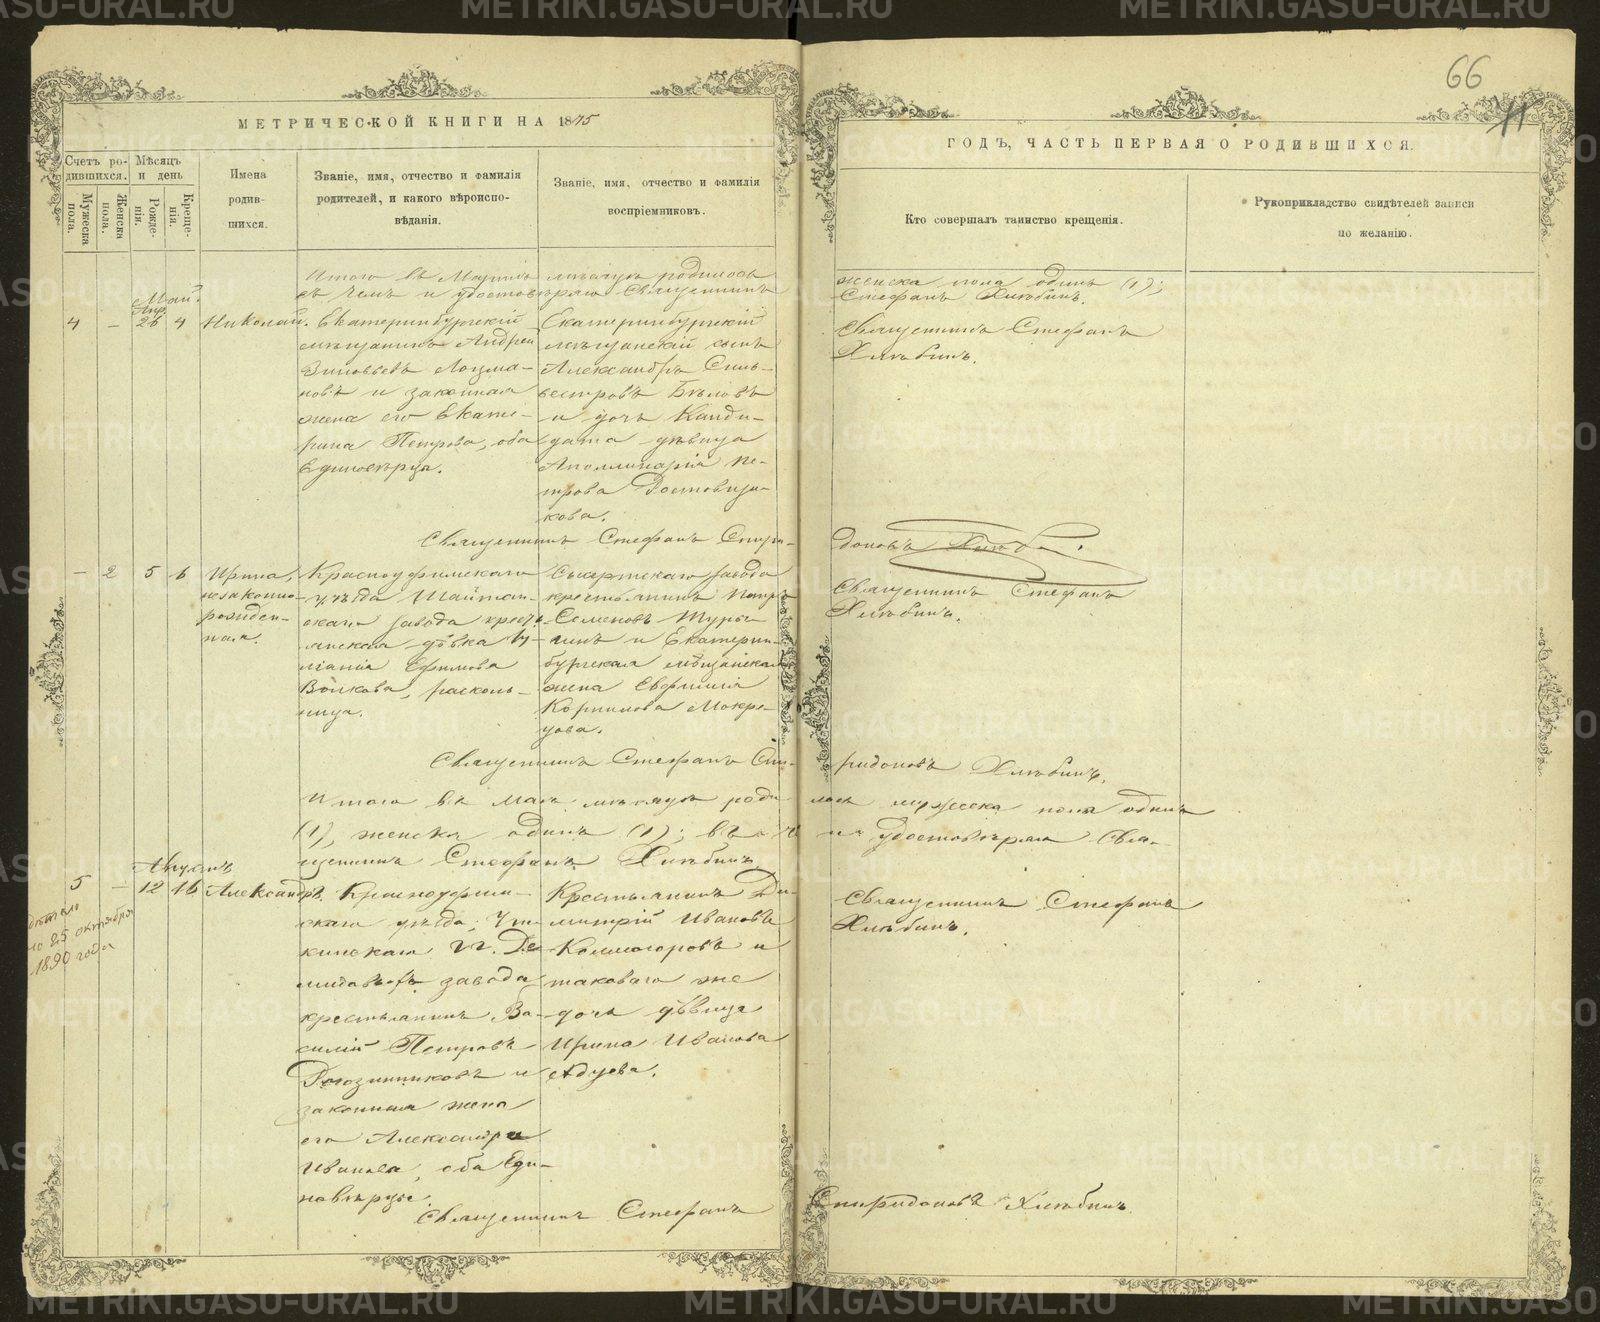 66
71
МЕТРИЧЕСКОЙ КНИГИ НА 1875
ГОДЪ, ЧАСТЬ ПЕРВАЯ О РОДИВШИХСЯ.
Счетъ ро-
дившихся.
Мужеска
пола.
Женска
пола.
Мѣсяцъ
и день
Рожде-
нія.
Креще-
нія.
Имена
родив-
шихся.
Званіе, имя, отчество и фамилія
родителей, и какого вѣроиспо-
вѣданія.
Званіе, имя, отчество и фамилія
воспріемниковъ.
Кто совершалъ таинство крещенія.
Рукоприкладство свидѣтелей записи
по желанію.
Итого въ Мартѣ мѣсяцѣ родилось женска пола одинъ (1);
въ чемъ и удостовѣряю Священникъ Стефанъ Хлѣбинъ.
Май.
Апр.
4 — 26 4
Николай.
Екатеринбургскій
мѣщанинъ Андрей
Зиновьевъ Лоцма-
новъ и законная
жена его Екате-
рина Петрова, оба
Единовѣрца.
Екатеринбургскій
мѣщанскій сынъ
Александръ Силь-
вестровъ Бѣловъ
и дочь Канди-
дата дѣвица
Аполлинарія Пе-
трова Ростовща-
кова.
Священникъ Стефанъ
Хлѣбинъ.
Священникъ Стефанъ Спири-
доновъ Хлѣбинъ.
— 2 5 6
Ирина,
незаконно-
рожден-
ная.
Красноуфимскаго
уѣзда Шайтан-
скаго завода кресть-
янская дѣвка
Ефимова
Волкова, расколь-
ница.
Сысертскаго завода
крестьянинъ Петръ
Семеновъ
и Екатерин-
бургская мѣщанская
жена Евфимія
Корнилова Мокро-
усова.
Священникъ Стефанъ
Хлѣбинъ.
Священникъ Стефанъ Спи-
ридоновъ Хлѣбинъ.
Итого въ Маѣ мѣсяцѣ роди- лось мужеска пола одинъ
(1), женска одинъ (1); въ чемъ и удостовѣряю Свя-
щенникъ Стефанъ Хлѣбинъ.
Августъ
5 — 12 16
25 октября
1890 года
Александръ.
Красноуфим-
скаго уѣзда, Ут-
кинскаго Гг. Де-
мидовыхъ завода
крестьянинъ Ва-
силій Петровъ
и
законная жена
его Александра
Иванова, оба Еди-
новѣрцы.
Крестьянинъ Ди-
митрій Ивановъ
Колмогоровъ и
таковаго же
дочь дѣвица
Ирина Иванова
Авдуева.
Священникъ Стефанъ
Хлѣбинъ.
Священникъ Стефанъ Спиридоновъ Хлѣбинъ.
METRIKI.GASO-URAL.RU